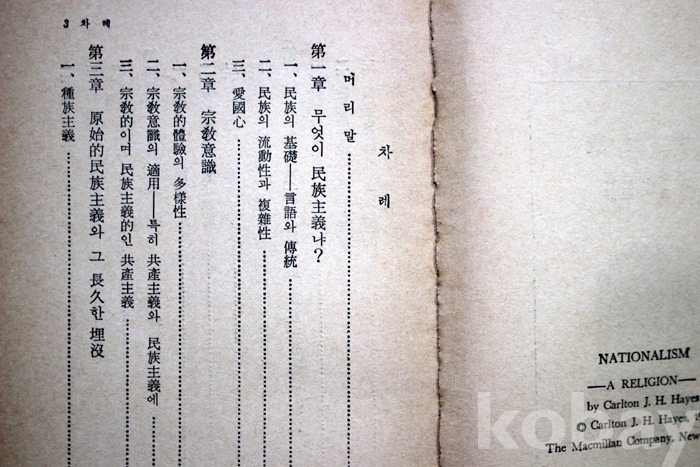 차 례
머 리 말
第一章 무엇이 民族主義냐?
一、民族의 基礎——言語와 傳統
二、民族의 流動性과 複雜性
三、愛國心
第二章 宗敎意識
一、宗敎的體驗의 多樣性
二、宗敎意識의 適用——특히 共產主義와 民族主義에
三、宗敎的이며 民族主義的인 共產主義
第三章 原始的民族主義와 그 長久한 埋沒
一、種族主義
3 차 례
NATIONALISM
—A RELIGION—
by Carlton J. H. Hayes
© Carlton J. H. Hayes,
The Macmillan Company, New
kobay